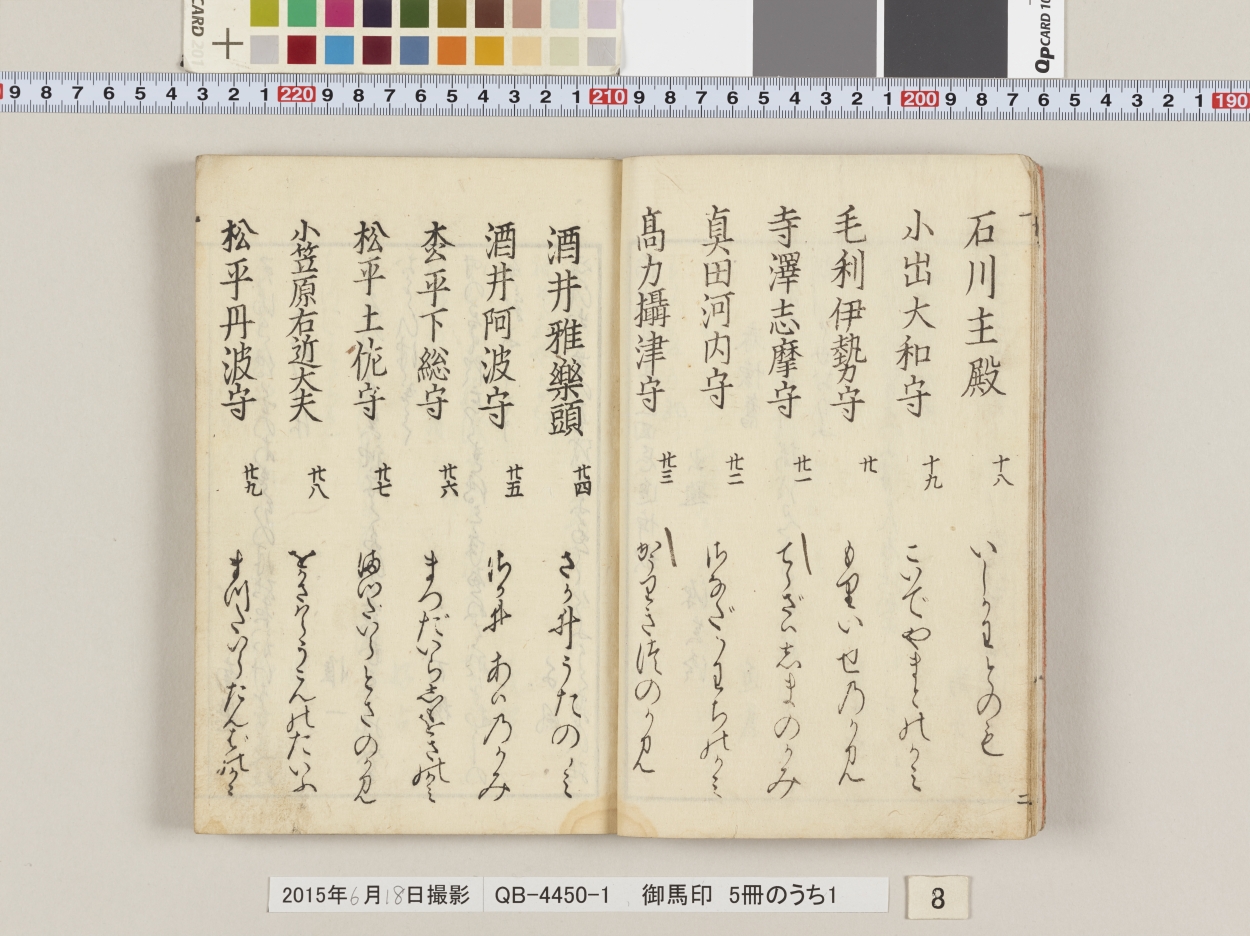 CARD 201
QPCARD 10
9 8 7 6 5 4 3 2 1 220 9 8 7 6 5 4 3 2 1 210 9 8 7 6 5 4 3 2 1 200 9 8 7 6 5 4 3 2 1 190
石川主殿 十八 いしかわとのも
小出大和守 十九 こいでやまとのかミ
毛利伊勢守 廿 もりいせのかみ
寺澤志摩守 廿一 てらざハしまのかみ
真田河内守 廿二 さなだかわちのかミ
髙力攝津守 廿三 かうりきつのかみ
酒井雅樂頭 廿四 さか井うたのかミ
酒井阿波守 廿五 さか井あハのかみ
枩平下総守 廿六 まつだいらしもをさのかミ
松平土佐守 廿七 まつだいらとさのかみ
小笠原右近大夫 廿八 をかさハらうこんのたいふ
松平丹波守 廿九 まつたいらたんばのかミ
2015年6月18日撮影 QB-4450-1 御馬印 5冊のうち1
8